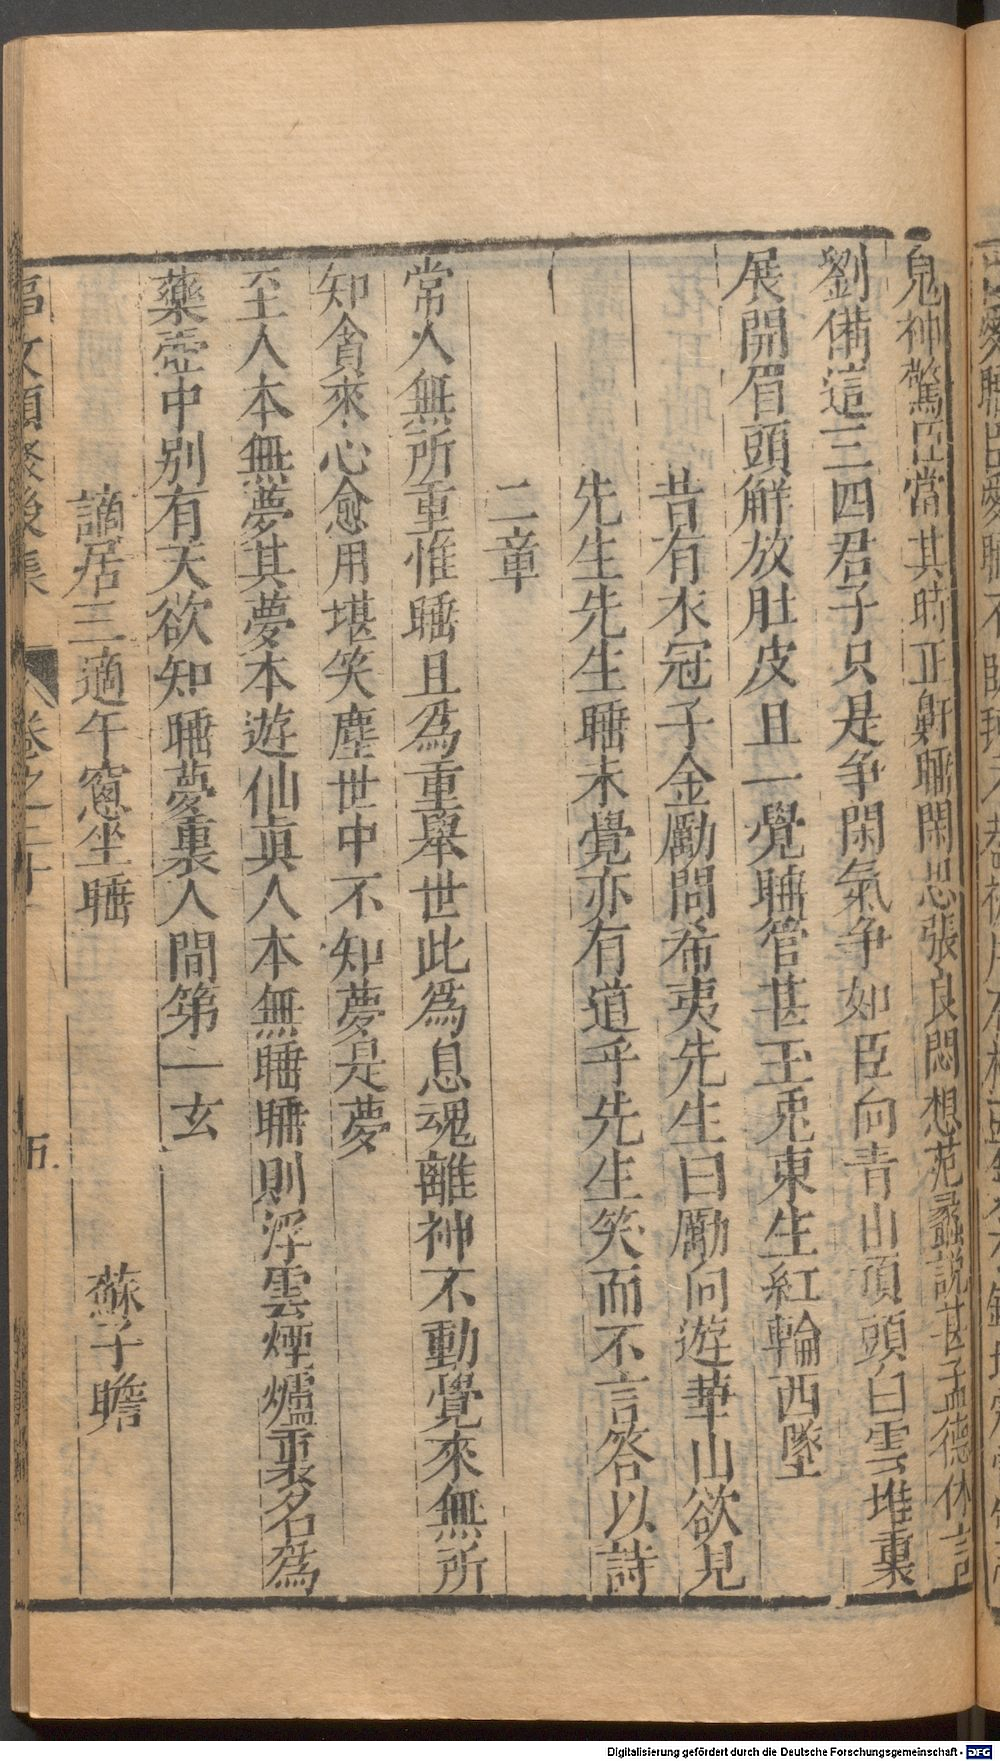 鬼神驚臣當其時正鼾睡閑思張良悶想范蠡説甚孟德休言
劉備這三四君子只是争閑氣争如臣向青山頂頭白雲堆裏
展開眉頭解放肚皮且一覺睡管甚玉兎東生紅輪西墜
昔有衣冠子金勵問希夷先生曰勵向遊華山欲見
先生先生睡未覺亦有道乎先生笑而不言答以詩
二章
常人無所重惟睡且為重舉世此為息魂離神不動覺來無所
知貪來心愈用堪笑塵世中不知夢是夢
至人本無夢其夢本遊仙眞人本無睡睡則浮雲煙爐裏名為
藥壺中别有天欲知睡夢裏人間第一玄
謫居三適午窻坐睡 蘇子瞻
Digitalisierung gefördert durch die Deutsche Forschungsgemeinschaft - DFG